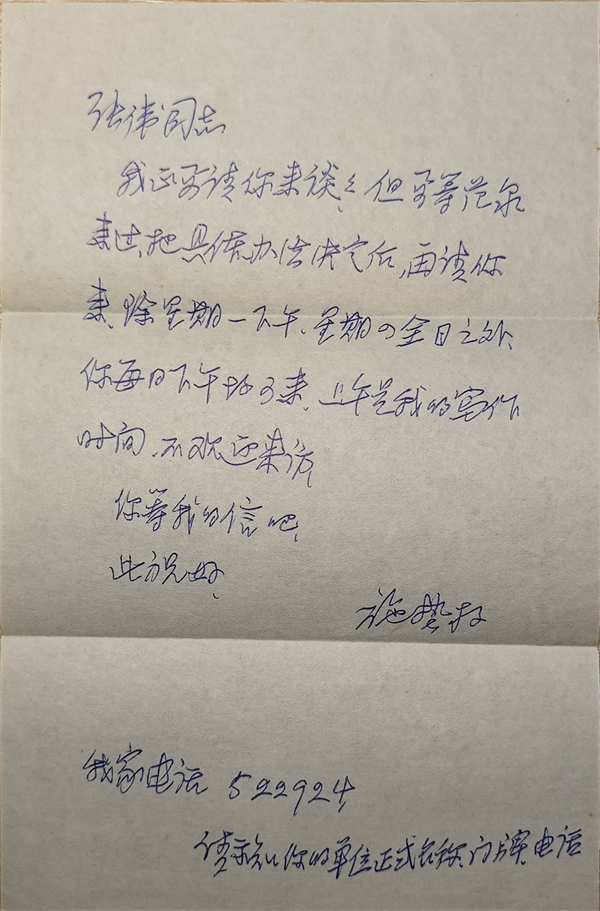 张伟同志
我正要请你来谈谈，但要等范泉
来过，把具体办法决定后，再请你
来，除星期一下午、星期四全日之外，
你每日下午均可来，上午是我的写作
时间，不欢迎来访，
你等我的信吧，
此祝好、
施蛰存
我家电话 522924
请示知你的单位正式名称、门牌、电话